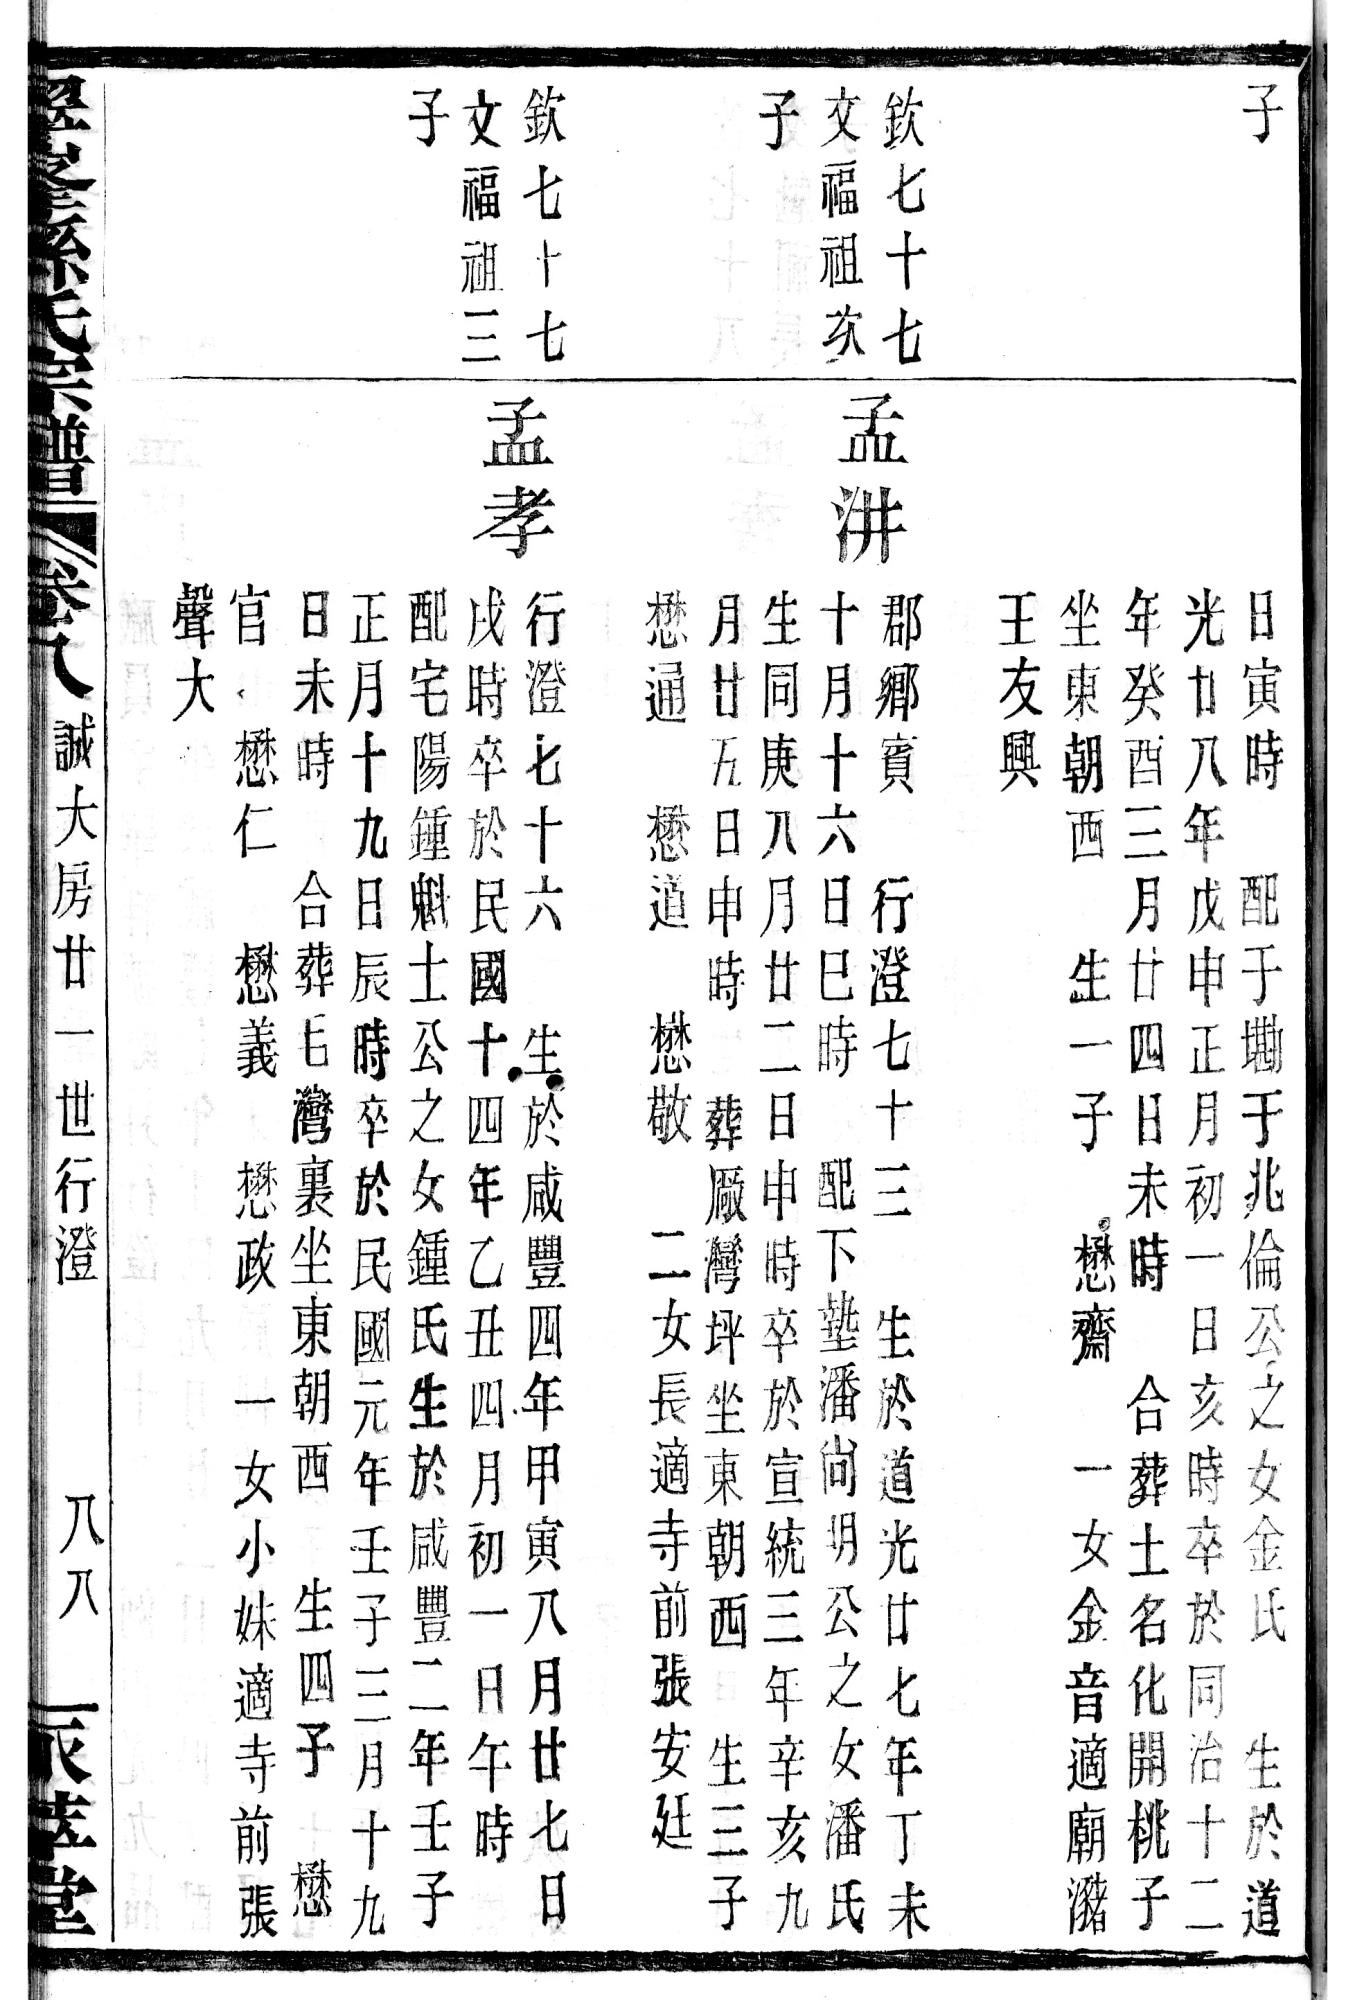 子
日寅時　配于墈于兆倫公之女金氏　生於道
光廿八年戊申正月初一日亥時卒於同治十二
年癸酉三月廿四日未時　合葬土名化開桃子
坐東朝西　生一子　懋齋　一女金音適廟潴
王友興
欽七十七
文福祖次
子
孟汫
郡鄉賓　行澄七十三　生於道光廿七年丁未
十月十六日巳時　配下墊潘尚明公之女潘氏
生同庚八月廿二日申時卒於宣統三年辛亥九
月廿五日申時　葬廠灣坪坐東朝西　生三子
懋通　懋道　懋敬　二女長適寺前張安廷
欽七十七
文福祖三
子
孟孝
行澄七十六　生於咸豐四年甲寅八月廿七日
戌時卒於民國十四年乙丑四月初一日午時
配宅陽鍾魁士公之女鍾氏生於咸豐二年壬子
正月十九日辰時卒於民國元年壬子三月十九
日未時　合葬毛灣裏坐東朝西　生四子　懋
官　懋仁　懋義　懋政　一女小妹適寺前張
聲大
孫氏宗譜　卷八　誠大房廿一世行澄　八八　堂